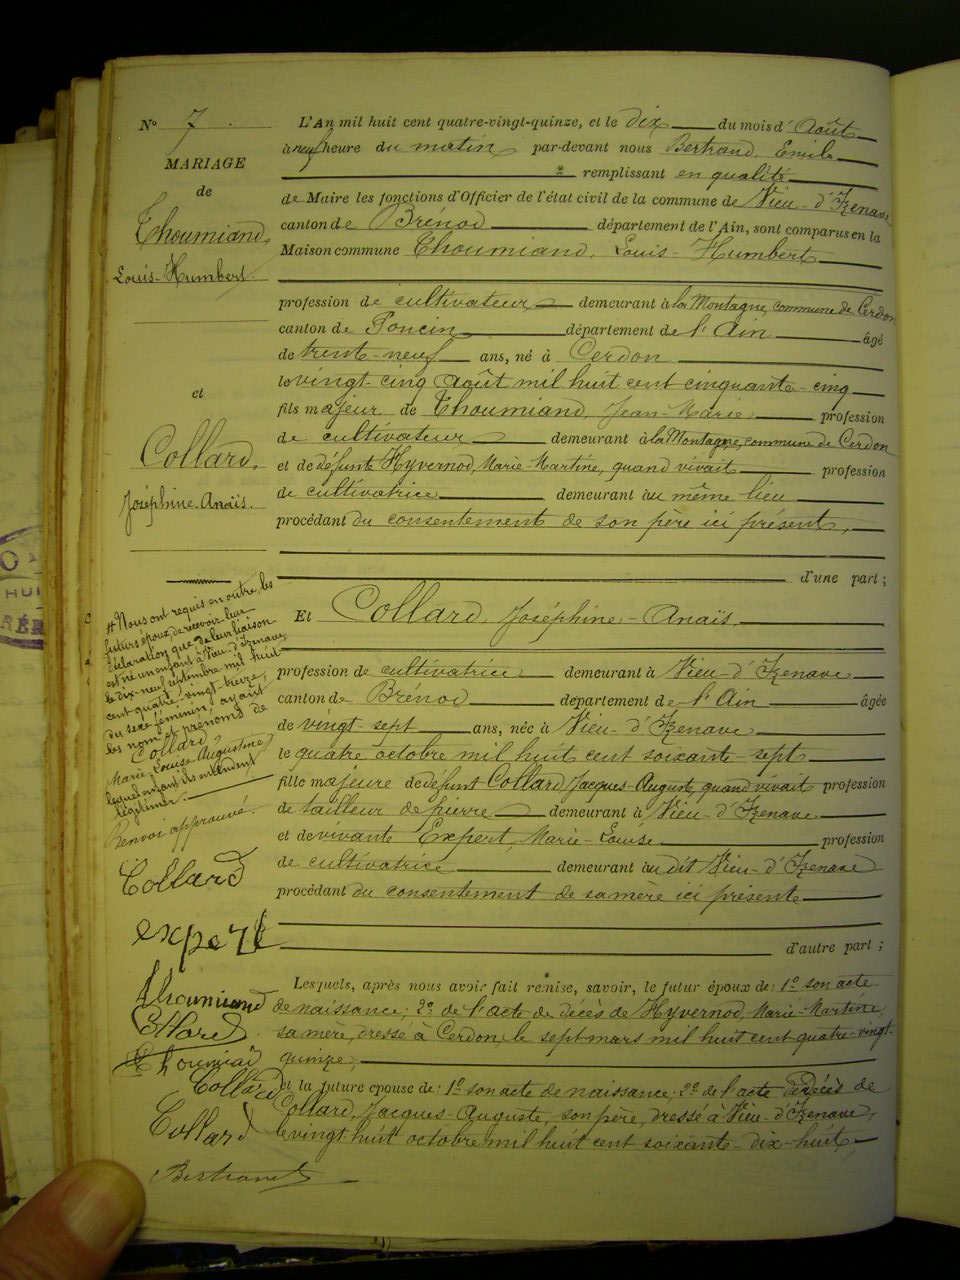 N° 7
MARIAGE
de
Thoumiand,
Louis-Humbert
et
Collard,
Joséphine-Anaïs.
# Nous ont requis en outre, les
futurs époux, de recevoir leur
déclaration que de leur liaison
est né un enfant à Vieu-d'Izenave,
le dix-neuf septembre mil huit
cent quatre-vingt-treize,
du sexe féminin, ayant
les nom et prénoms de
Collard
Marie-Louise-Augustine
lequel enfant ils entendent
légitimer.
Renvoi approuvé.
Collard
expert
Thoumiand
Collard
Thoumiad
Collard
Collard
Bertrand
L'An mil huit cent quatre-vingt-quinze, et le dix du mois d'Août
à neuf heure du matin par-devant nous Bertrand, Emile
remplissant en qualité
de Maire les fonctions d'Officier de l'état civil de la commune de Vieu-d'Izenave
canton de Brénod département de l'Ain, sont comparus en la
Maison commune Thoumiand, Louis-Humbert
profession de cultivateur demeurant à la Montagne, commune de Cerdon
canton de Poncin département de l'Ain âgé
de trente-neuf ans, né à Cerdon
le vingt-cinq Août mil huit cent cinquante-cinq
fils majeur de Thoumiand, Jean-Marie profession
de cultivateur demeurant à la Montagne, commune de Cerdon
et de défunte Hyvernod, Marie-Martine, quand vivait profession
de cultivatrice demeurant au même lieu
procédant du consentement de son père ici présent,
d'une part ;
Et Collard, Joséphine-Anaïs,
profession de cultivatrice demeurant à Vieu-d'Izenave
canton de Brénod département de l'Ain âgée
de vingt-sept ans, née à Vieu-d'Izenave
le quatre octobre mil huit cent soixante-sept
fille majeure de défunt Collard Jacques-Auguste, quand vivait profession
de tailleur de pierre demeurant à Vieu-d'Izenave
et de vivante Expert, Marie-Louise profession
de cultivatrice demeurant au dit Vieu-d'Izenave
procédant du consentement de sa mère ici présente
d'autre part ;
Lesquels, après nous avoir fait remise, savoir, le futur époux de : 1° son acte
de naissance ; 2° de l'acte de décès de Hyvernod, Marie-Martine,
sa mère, dressé à Cerdon, le sept mars mil huit cent quatre-vingt-
quinze,
et la future épouse de : 1° son acte de naissance ; 2° de l'acte de décès de
Collard, Jacques-Auguste, son père, dressé à Vieu-d'Izenave,
le vingt-huit octobre mil huit cent soixante-dix-huit,